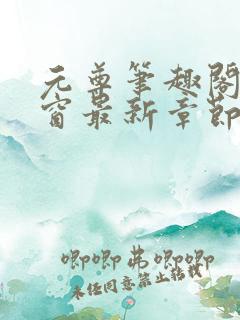 元尊笔趣阁
窗最新章节
唧唧弟唧唧
未经同意禁止转载